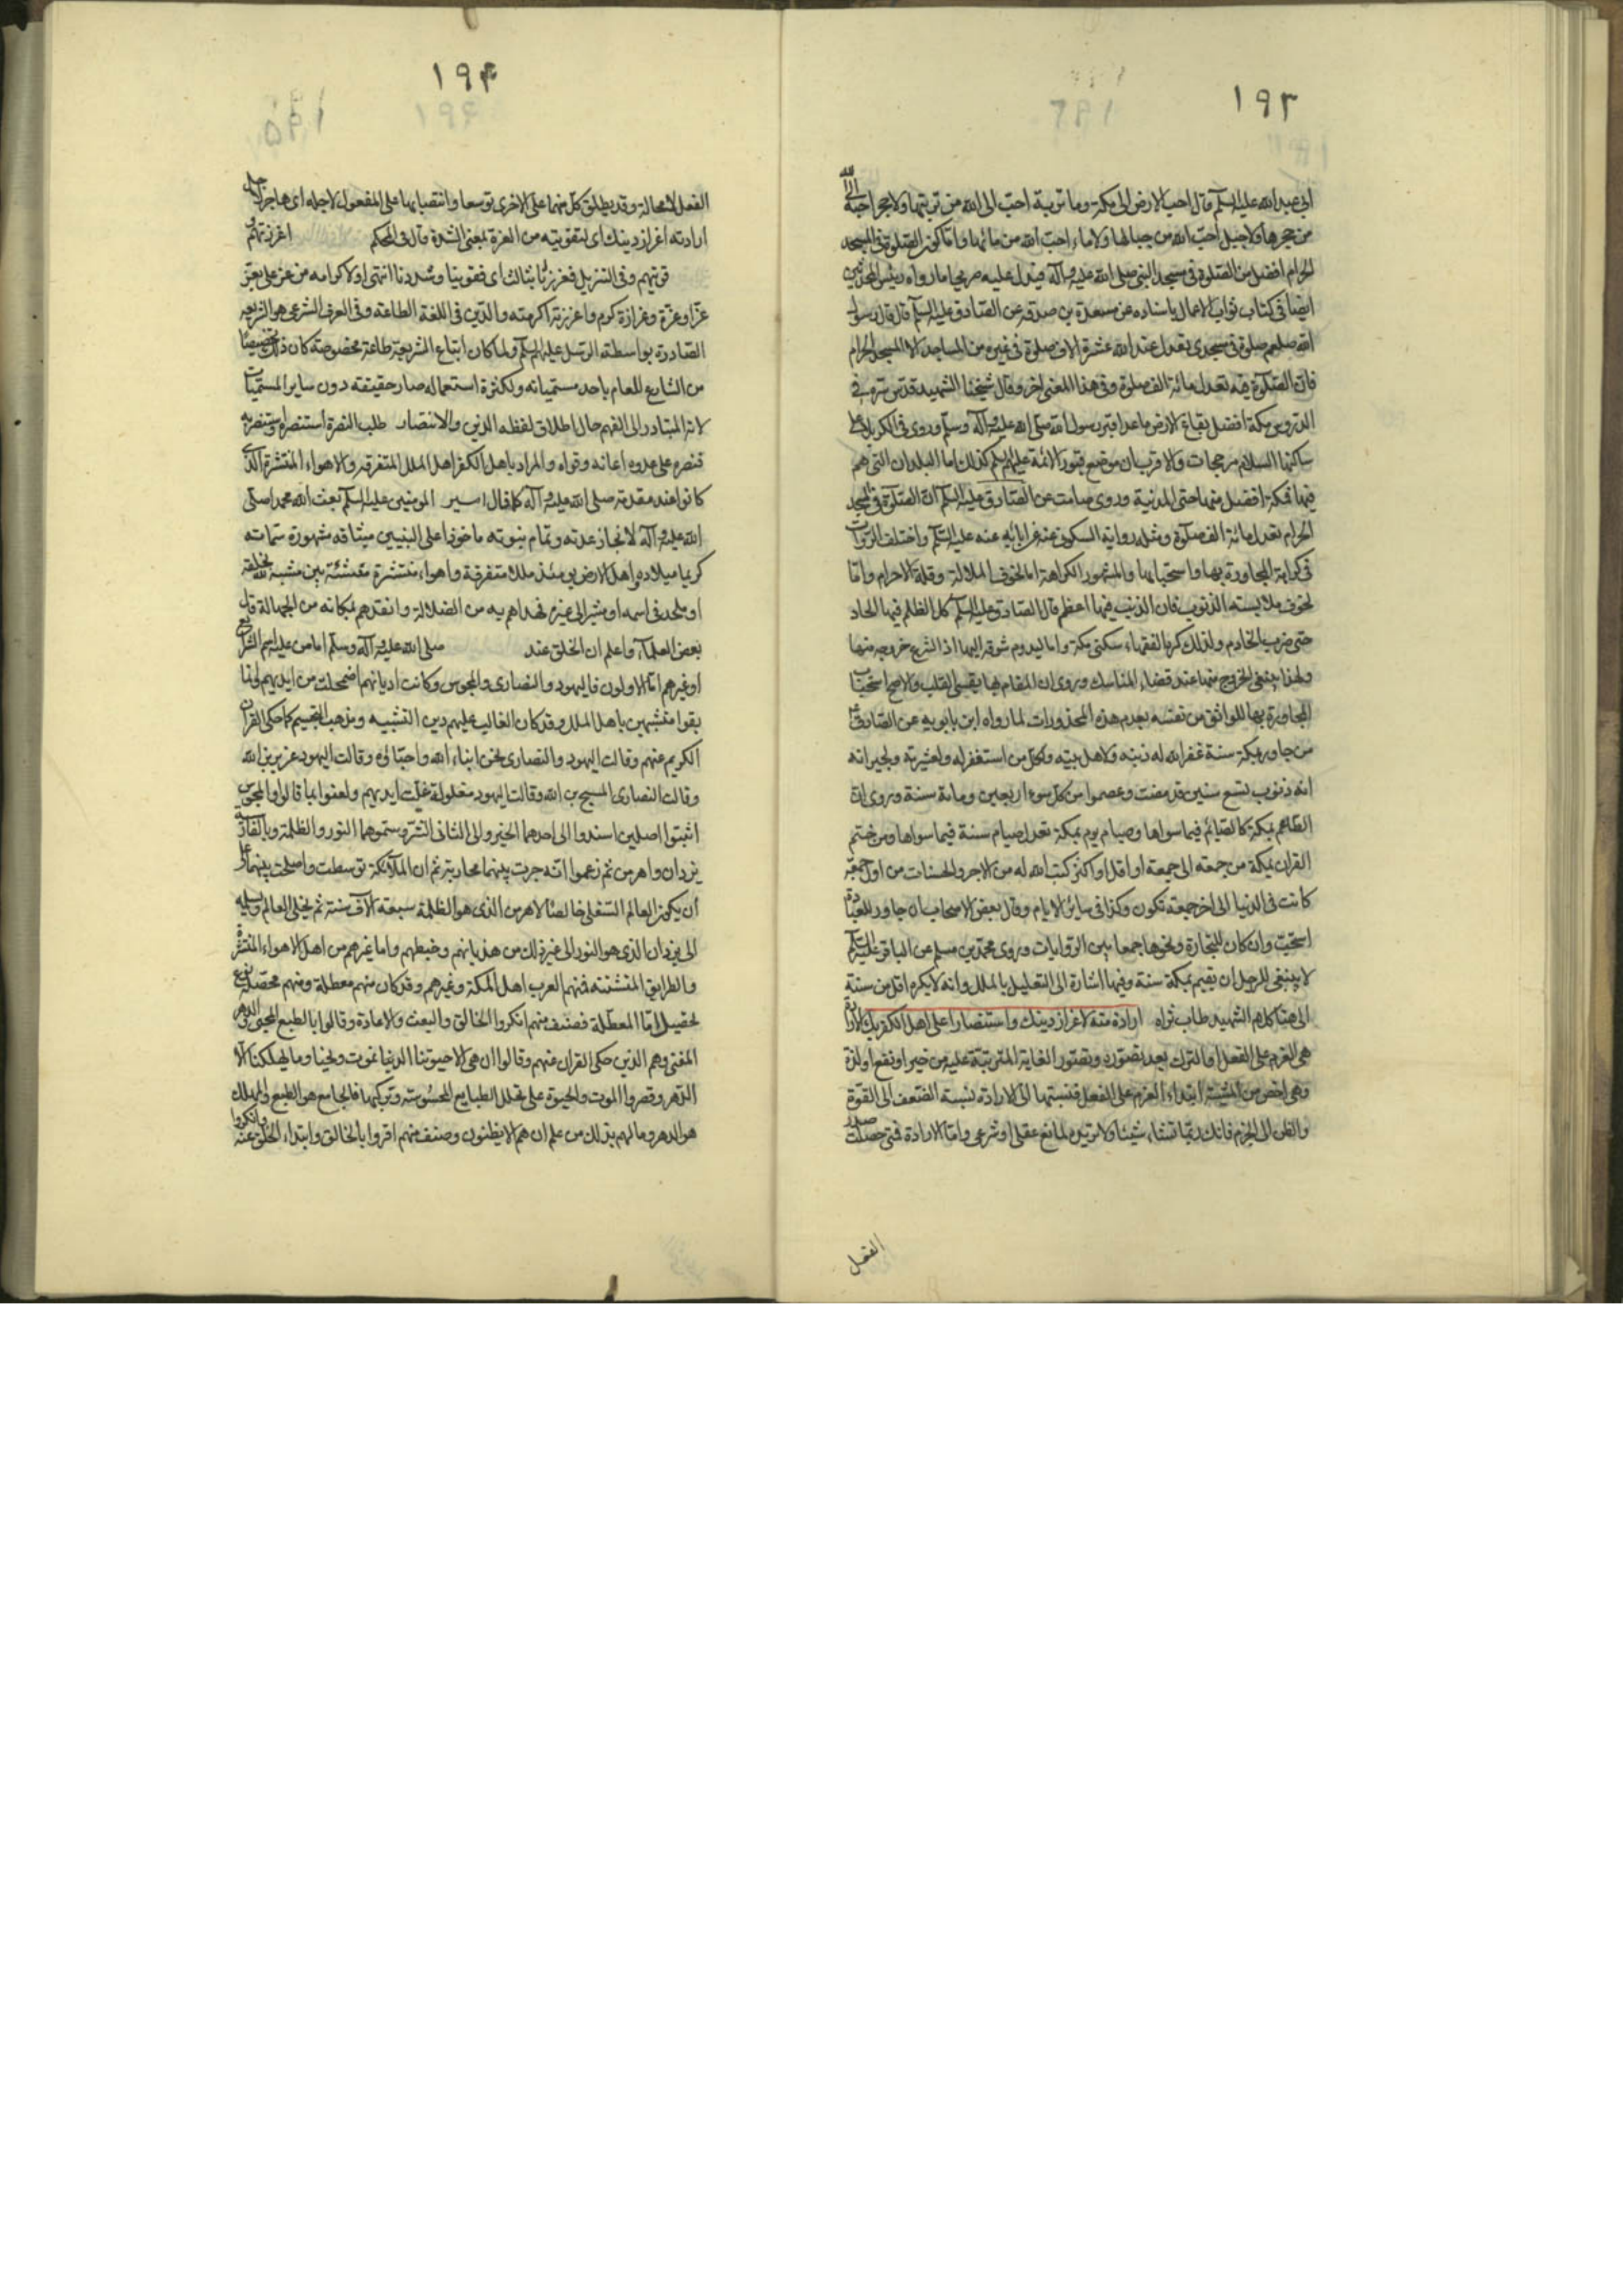 ١٩٣
ابي عبد الله عليه السلم قال احب الارض الى الله مكة وما تربة احب الى الله من تربتها ولا حجر احب الى الله
من حجرها ولا جبل احب الله من جبالها ولا ماء احب الله من مائها واما كون الصلوة في المسجد
الحرام افضل من الصلوة في مسجد النبي صلى الله عليه وآله فيدل عليه صريحا ما رواه رئيس المحدثين
ايضا في كتاب ثواب الاعمال باسناده عن مسعدة بن صدقه عن الصادق عليه السلم قال قال رسول
الله صلعم صلوة في مسجدي تعدل عند الله عشرة الاف صلوة في غيره من المساجد الا المسجد الحرام
فان الصلوة فيه تعدل مائة الف صلوة وفي هذا المعنى اخر وقال شيخنا الشهيد قدس سره في
الدروس مكة افضل بقاع الارض ما عدا قبر رسول الله صلى الله عليه وآله وسلم وروى في كربلا على
ساكنها السلام مرجحات والاقرب ان موضع قبور الائمة عليهم السلم كذلك اما البلدان التي هم
فيها فمكة افضل منها حتى المدينة وروى صامت عن الصادق عليه السلم ان الصلوة في المسجد
الحرام تعدل مائة الف صلوة ومثله رواية السكوني عنه عن ابائه عنه عليه السلم واختلف الروايات
في كراهة المجاورة بها واستحبابها والمشهور الكراهة اما لخوف الملالة وقلة الاحرام واما
لخوف ملابسته الذنوب فان الذنب فيها اعظم قال الصادق عليه السلم كل الظلم فيها الحاد
حتى ضرب الخادم ولذلك كره الفقهاء سكنى مكة واما ليدوم شوقه اليها اذا اسرع خروجه منها
ولهذا ينبغي الخروج منها عند قضاء المناسك وروى ان المقام بها يقسي القلب والاصح استحباب
المجاورة بها للواثق من نفسه بعدم هذه المحذورات لما رواه ابن بابويه عن الصادق ع
من جاور بمكة سنة غفر الله له ذنبه ولاهل بيته ولكل من استغفر له ولعشيرته ولجيرانه
انه ذنوب تسع سنين قد مضت وعصموا من كل سوء اربعين ومائة سنة وروى ان
الطاعم بمكة كالصائم فيما سواها وصيام يوم بمكة تعدل صيام سنة فيما سواها ومن ختم
القران بمكة من جمعه الى جمعة او اقل او اكثر كتب الله له من الاجر والحسنات من اول جمعة
كانت في الدنيا الى اخر جمعة تكون وكذا في ساير الايام وقال بعض الاصحاب ان جاور للعبادة
استحب وان كان للتجارة ونحوها جمعا بين الروايات وروى محمد بن مسلم عن الباقر عليه السلم
لا ينبغي للرجل ان يقيم بمكة سنة وفيها اشارة الى التعليل بالملل وانه لا يكره اقل من سنة
الى هنا كلام الشهيد طاب ثراه ارادة منه لاعزاز دينك واستنصارا على اهل الكفر بك الارادة
هي العزم على الفعل او الترك بعد تصوره وتصور الغاية المترتبة عليه من خير او نفع او لذة
وهي اخص من المشية ابتداء العزم على الفعل فنسبتها الى الارادة نسبة الضعف الى القوة
والظن الى الجزم فانك ربما تشاء شيئا ولا تريده لمانع عقلي او شرعي واما الارادة فمتى حصلت صدر
الفعل
١٩٤
الفعل لا محالة وقد يطلق كل منهما على الاخرى توسعا وانتصابها على المفعول لاجله اى هاجر لاجل
ارادته اعزاز دينك اى لتقويته من العزة بمعنى الشدة قال في المحكم اعززتهم و
قويتهم وفي التنزيل فعززنا بثالث اى فقوينا وشددنا انتهى او لاكرامه من عز على يعز
عزا وعزة وعزازة كرم واعززته اكرمته والدين في اللغة الطاعة وفي العرف الشرعي هو الشريعه
الصادرة بواسطة الرسل عليهم السلم ولما كان اتباع الشريعة طاعة مخصوصة كان ذلك تخصيصا
من الشارع للعام باحد مسمياته ولكثرة استعماله صار حقيقته دون ساير المسميات
لانه المتبادر الى الفهم حال اطلاق لفظه الدين والانتصار طلب النصرة استنصره واستنصر به
فنصره على عدوه اعانه وقواه والمراد باهل الكفر اهل الملل المتفرقه والاهواء المنتشرة الذي
كانوا عند مقدمه صلى الله عليه وآله كما قال امير المومنين عليه السلم بعث الله محمدا صلى
الله عليه وآله لانجاز عدته وتمام نبوته ماخوذا على النبيين ميثاقه مشهورة سماته
كريما ميلاده واهل الارض يومئذ ملل متفرقة واهواء منتشرة متشتتة بين مشبه لله بخلقه
او ملحد في اسمه او مشير الى غيره فهداهم به من الضلالة وانقذهم بمكانه من الجهالة قال
بعض العلماء واعلم ان الخلق عند صلى الله عليه وآله وسلم اما من عليه اسم الشرايع
او غيرهم اما الاولون فاليهود والنصارى والمجوس وكانت اديانهم اضمحلت من ايديهم وانما
بقوا متشبهين باهل الملل وقد كان الغالب عليهم دين التشبيه ومذهب التجسيم كما حكى القران
الكريم عنهم وقالت اليهود والنصارى نحن ابناء الله واحباؤه وقالت اليهود عزير بن الله
وقالت النصارى المسيح بن الله وقالت اليهود يد الله مغلولة غلت ايديهم ولعنوا بما قالوا والمجوس
اثبتوا اصلين اسندوا الى احدهما الخير والى الثاني الشر وسموهما النور والظلمة وبالفارسية
يزدان واهرمن ثم زعموا انه جرت بينهما محاربة ثم ان الملائكة توسطت واصلحت بينهما على
ان يكون العالم السفلي خالصا لاهرمن الذي هو الظلمة سبعة آلاف سنة ثم يخلي العالم ويسلمه
الى يزدان الذي هو النور الى غير ذلك من هذيانهم وخبطهم واما غيرهم من اهل الاهواء المنتشرة
والطرايق المتشتتة فمنهم العرب اهل المكة وغيرهم وقد كان منهم معطلة ومنهم محصلة نوع
تحصيل اما المعطلة فصنف منهم انكروا الخالق والبعث والاعادة وقالوا بالطبع المحيي والدهر
المفني وهم الذين حكى القران عنهم وقالوا ان هي الا حيوتنا الدنيا نموت ونحيا وما يهلكنا الا
الدهر وقصروا الموت والحيوة على تحلل الطبايع المحسوسة وتركبها فالجامع هو الطبع والمهلك
هو الدهر وما لهم بذلك من علم ان هم الا يظنون وصنف منهم اقروا بالخالق وابتداء الخلق عنه وانكروا